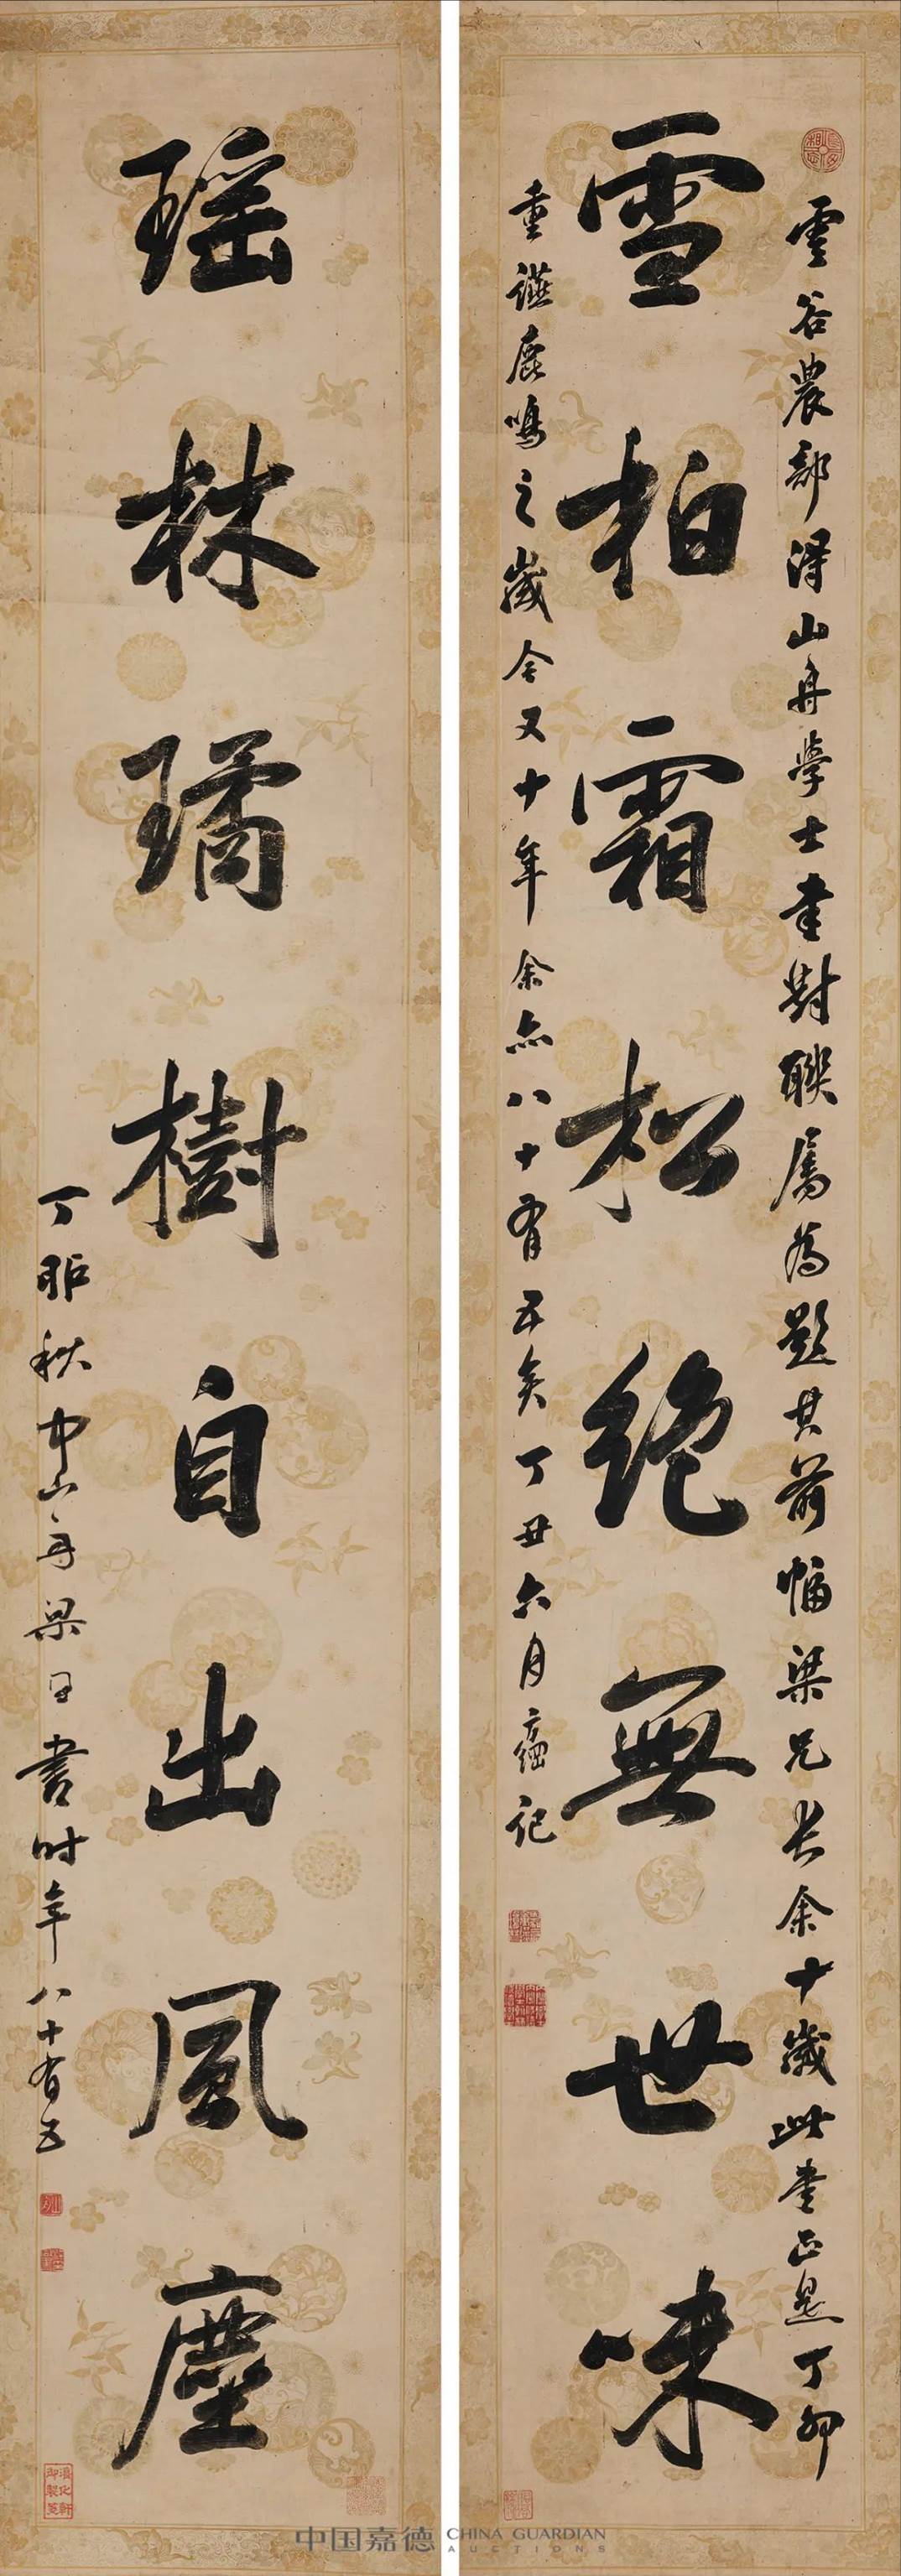 雲谷農部得山舟學士書對聯屬為題其前幅梁兄長余十歲此書正是丁卯
雪柏霜松絶無世味
重讌鹿鳴之歲今又十年余亦八十有五矣丁丑六月翁方綱記
瑶林璚樹自出風塵
丁卯秋中山舟梁同書時年八十有五
淳化軒
御製笺
中国嘉德 CHINA GUARDIAN
AUCTIONS